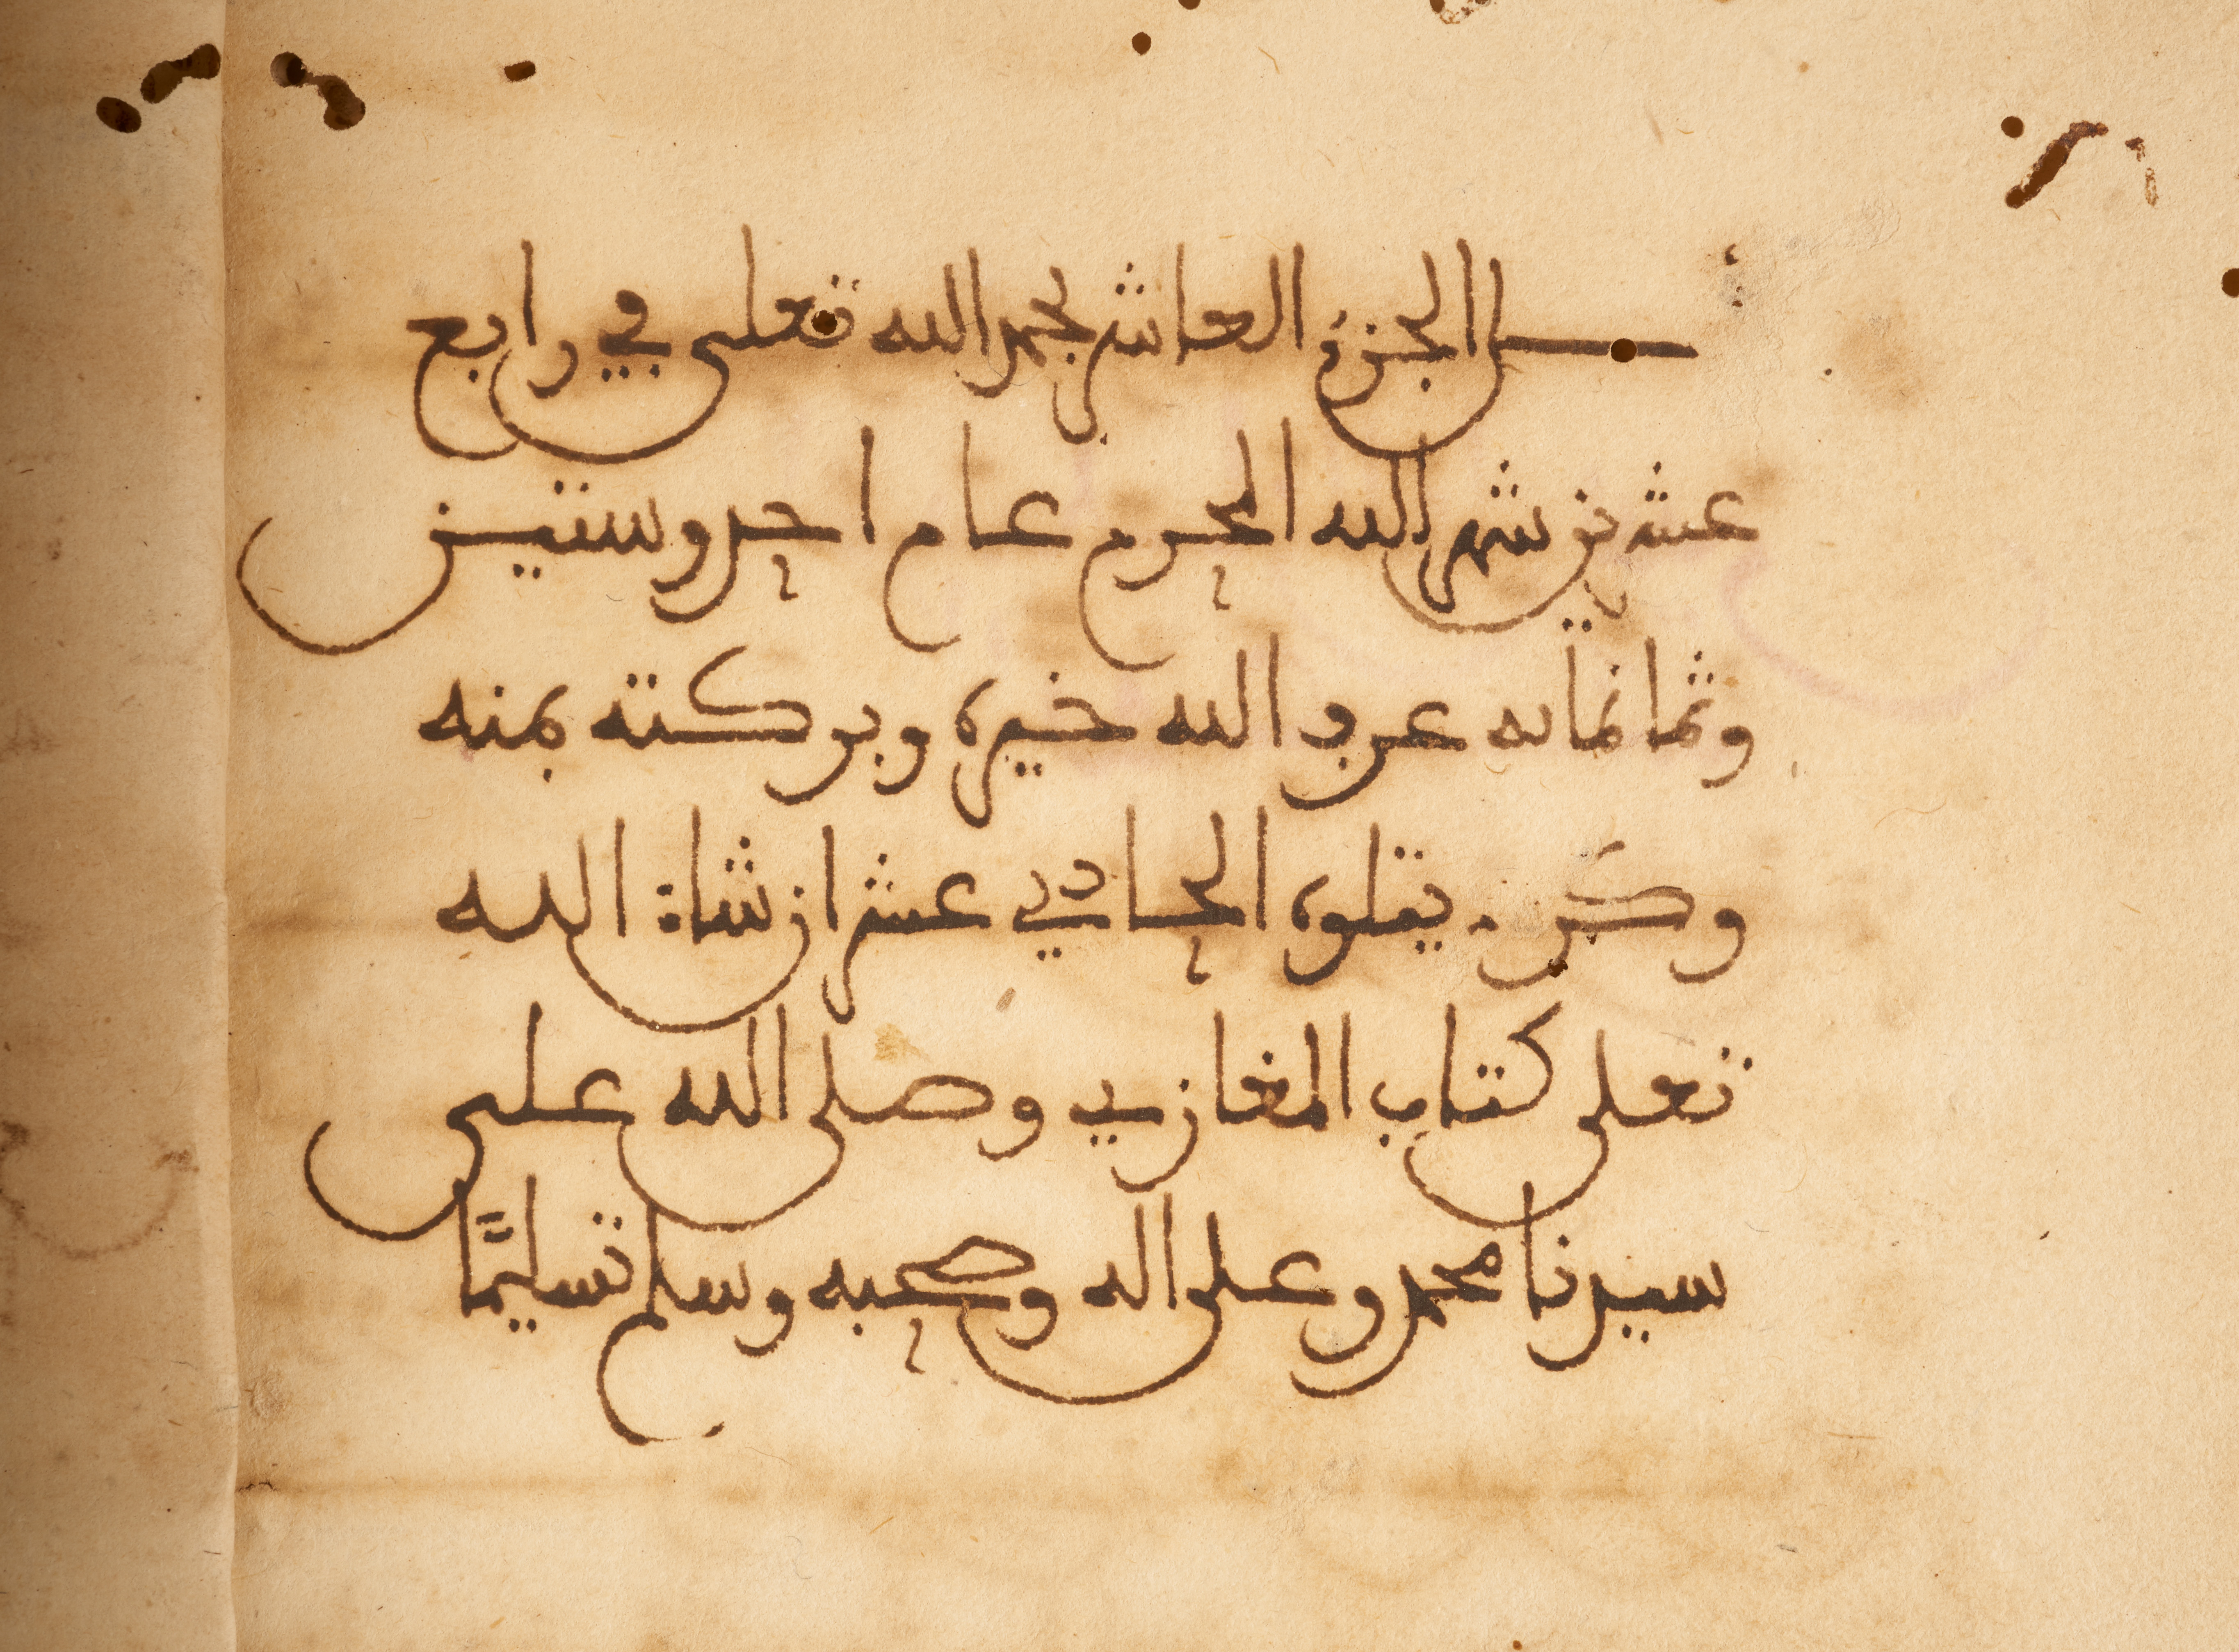 كمل الجزء العاشر بحمد الله تعلى في رابع
عشرين شهر الله المحرم عام احد وستين
وثمانمائه عرف الله خيره وبركته بمنه
وكرمه يتلوه الحادي عشر ان شاء الله
تعلى كتاب المغازي وصلى الله على
سيدنا محمد وعلى اله وصحبه وسلم تسليمًا